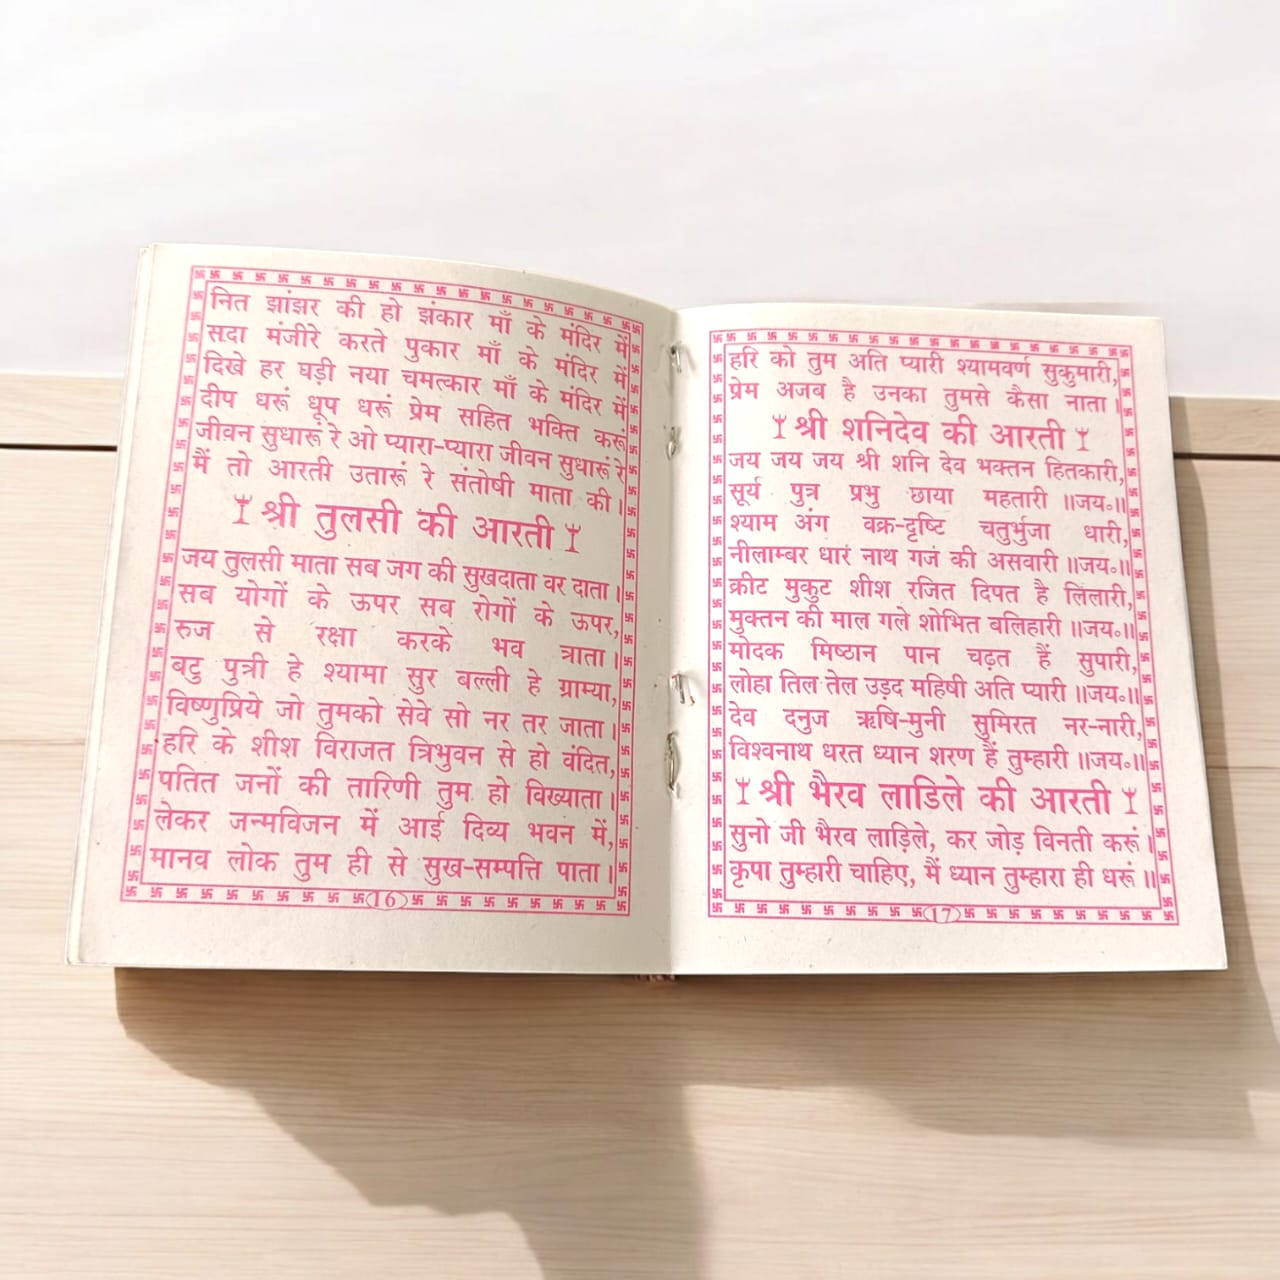 नित झांझर की हो झंकार माँ के मंदिर में
सदा मंजीरे करते पुकार माँ के मंदिर में
दिखे हर घड़ी नया चमत्कार माँ के मंदिर में
दीप धरूं धूप धरूं प्रेम सहित भक्ति करूं
जीवन सुधारूं रे ओ प्यारा-प्यारा जीवन सुधारूं रे
मैं तो आरती उतारूं रे संतोषी माता की।
श्री तुलसी की आरती
जय तुलसी माता सब जग की सुखदाता वर दाता।
सब योगों के ऊपर सब रोगों के ऊपर,
रुज से रक्षा करके भव त्राता।
बटु पुत्री हे श्यामा सुर बल्ली हे ग्राम्या,
विष्णुप्रिये जो तुमको सेवे सो नर तर जाता।
हरि के शीश विराजत त्रिभुवन से हो वंदित,
पतित जनों की तारिणी तुम हो विख्याता।
लेकर जन्मविजन में आई दिव्य भवन में,
मानव लोक तुम ही से सुख-सम्पत्ति पाता।
16
हरि को तुम अति प्यारी श्यामवर्ण सुकुमारी,
प्रेम अजब है उनका तुमसे कैसा नाता।
श्री शनिदेव की आरती
जय जय जय श्री शनि देव भक्तन हितकारी,
सूर्य पुत्र प्रभु छाया महतारी ॥जय॰॥
श्याम अंग वक्र-दृष्टि चतुर्भुजा धारी,
नीलाम्बर धार नाथ गज की असवारी ॥जय॰॥
क्रीट मुकुट शीश रजित दिपत है लिलारी,
मुक्तन की माल गले शोभित बलिहारी ॥जय॰॥
मोदक मिष्ठान पान चढ़त हैं सुपारी,
लोहा तिल तेल उड़द महिषी अति प्यारी ॥जय॰॥
देव दनुज ऋषि-मुनी सुमिरत नर-नारी,
विश्वनाथ धरत ध्यान शरण हैं तुम्हारी ॥जय॰॥
श्री भैरव लाडिले की आरती
सुनो जी भैरव लाड़िले, कर जोड़ विनती करूं।
कृपा तुम्हारी चाहिए, मैं ध्यान तुम्हारा ही धरूं॥
17